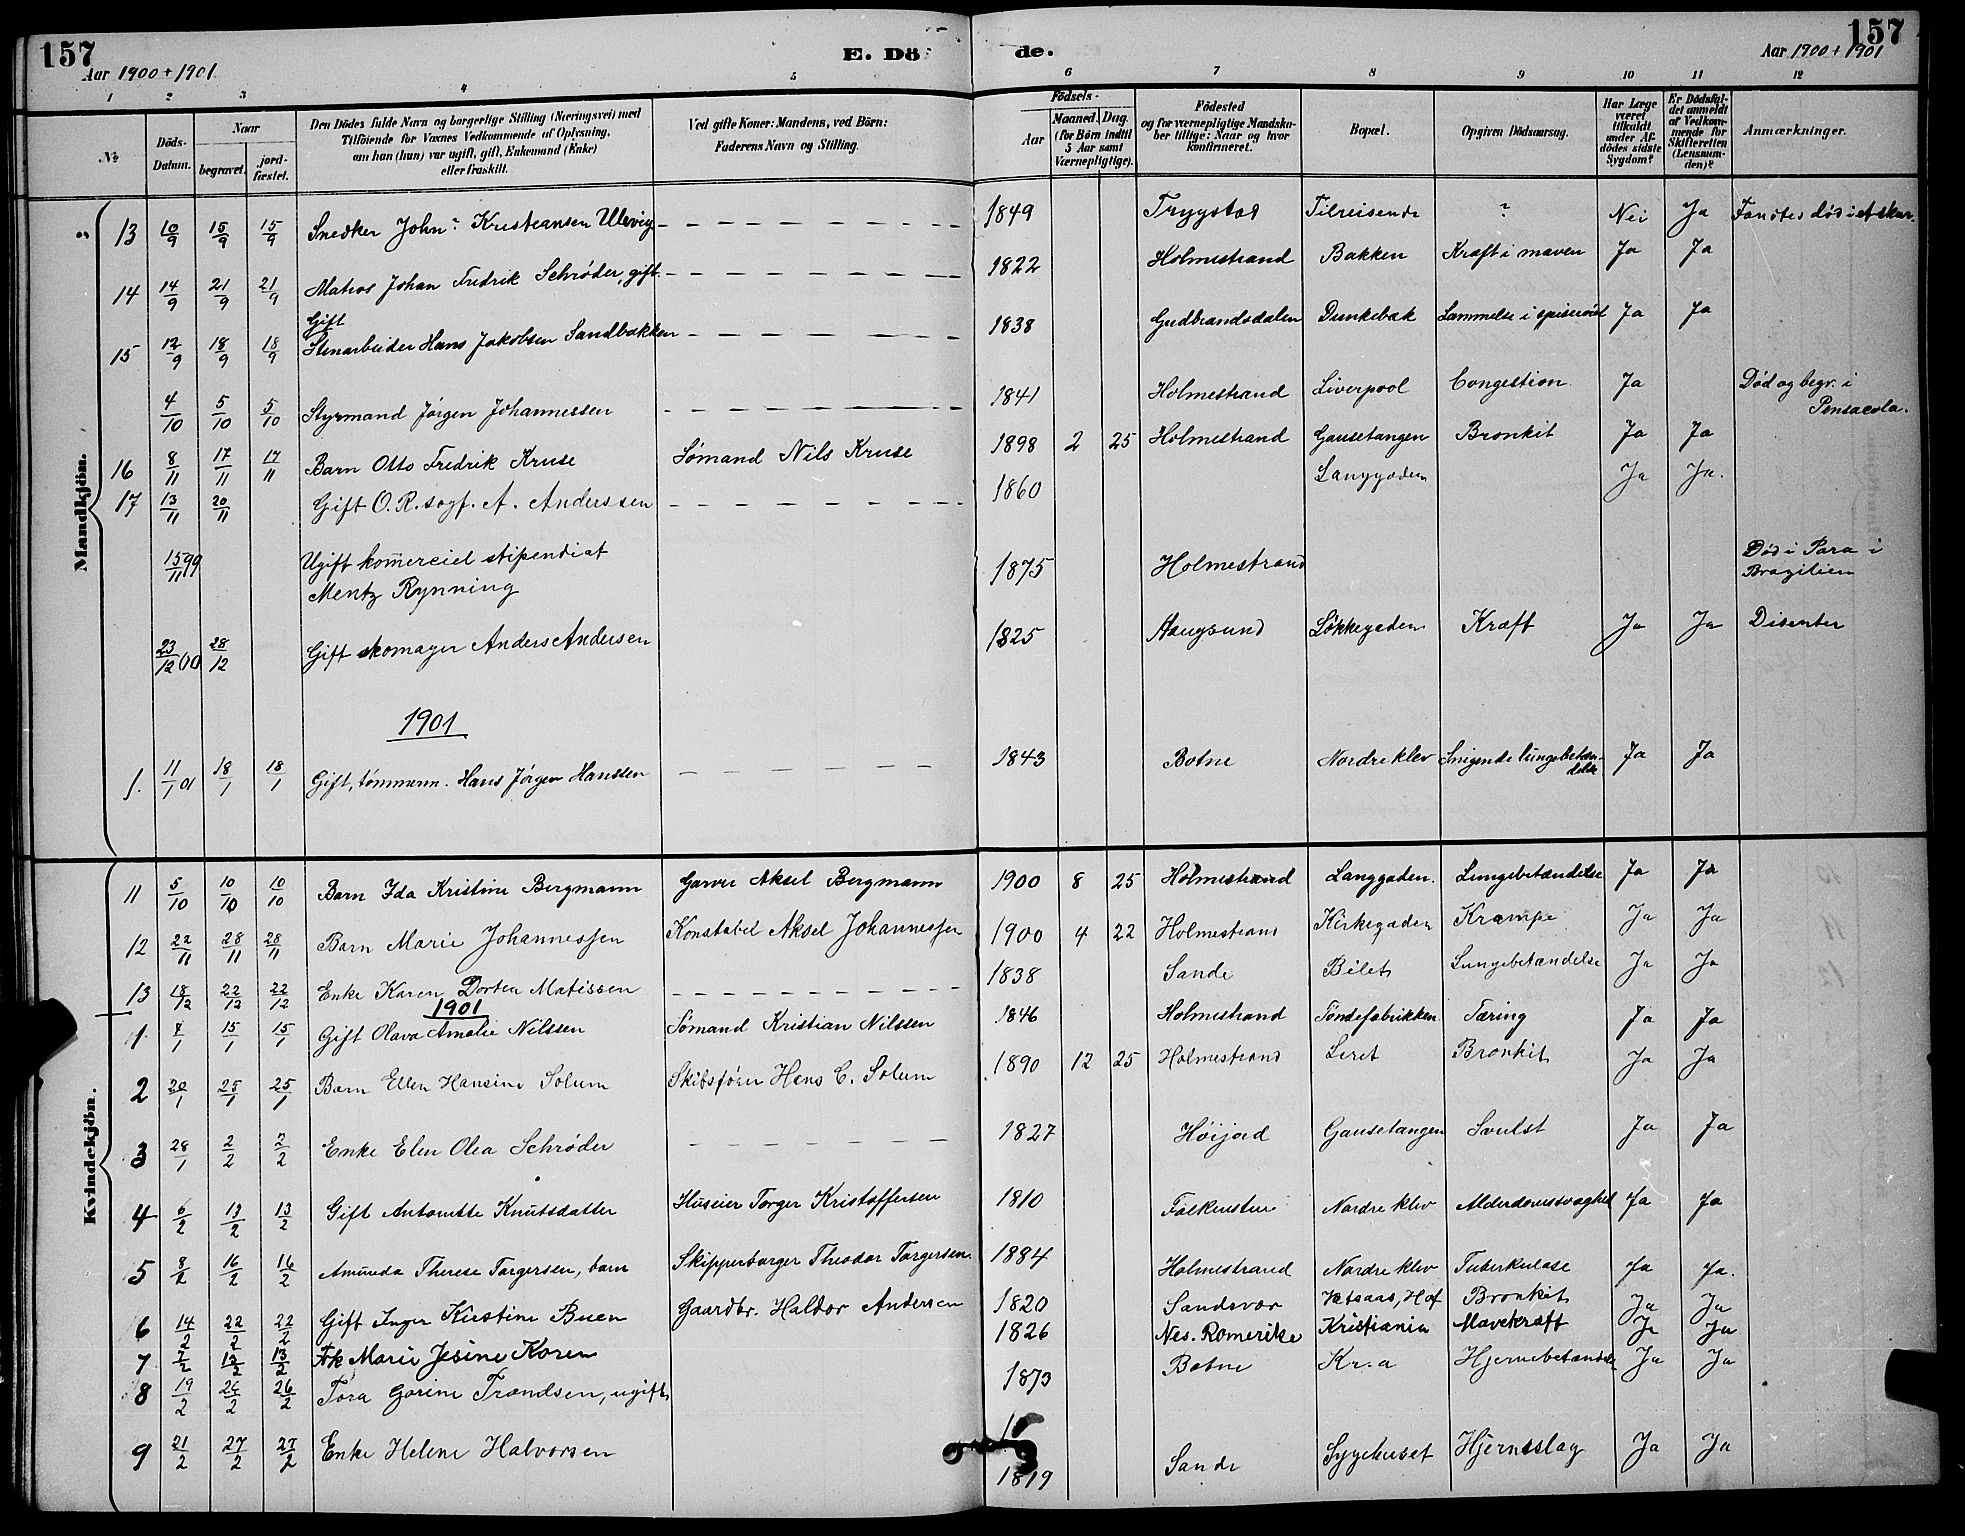 157 Aar 1900 + 1901 E. Dö de. Aar 1900 + 1901 157
1 2 3 4 5 6 7 8 9 10 11 12
№ Döds-Datum. Naar begravet. jord-fæstet. Den Dödes fulde Navn og borgerlige Stilling (Næringsvei) med Tilföiende for Voxnes Vedkommende af Oplysning, om han (hun) var ugift, gift, Enkemand (Enke) eller fraskilt. Ved gifte Koner: Mandens, ved Börn: Faderens Navn og Stilling. Födsels- Aar Maaned. Dag. (for Børn indtil 5 Aar samt Værnepligtige). Födested og for værnepligtige Mandskaber tillige: Naar og hvor konfirmeret. Bopæl. Opgiven Dödsaarsag. Har Læge været tilkaldt under Afdödes sidste Sygdom? Er Dödsfaldet anmeldt af Vedkommende for Skifteretten (Lensmanden)? Anmærkninger.
Mandkjön.
13 10/9 15/9 15/9 Snedker John? Kristiansen Ulevig 1849 Trygstad Tilreisende ? Nei Ja Fandtes død i et skur.
14 14/9 21/9 21/9 Matros Johan Fredrik Schrøder, gift. 1822 Holmestrand Bakken Kræft i maven Ja Ja
15 12/9 18/9 18/9 Gift Stenarbeider Hans Jakobsen Sandbakken 1838 Gudbrandsdalen Dunkebak Lammelse i spiserøret Ja Ja
4/10 5/10 5/10 Styrmand Jørgen Johannessen 1841 Holmestrand Liverpool Congestion Ja Død og begr. i Pensacola.
16 8/11 17/11 17/11 Barn Otto Fredrik Kruse Sømand Nils Kruse 1898 2 25 Holmestrand Gausetangen Bronkit Ja Ja
17 13/11 20/11 Gift O.R. sagf. A. Anderssen 1860 Langgaden Ja Ja.
15/11 99 Ugift komerciel stipendiat Mentz Rynning 1875 Holmestrand Død i Para i Brazilien
23/12 00 28/12 Gift skomager Anders Andersen 1825 Haugsund Løkkegaden Kræft Ja Ja Disenter
1901
1. 11/1 01 18/1 18/1 Gift, tømmerm. Hans Jørgen Hanssen 1843 Botne Nordre klev Snigende lungebetændelse Ja Ja
Kvindekjön.
11 5/10 10/10 10/10 Barn Ida Kristine Bergmann Garver Aksel Bergmann 1900 8 25 Holmestrand Langgaden. Lungebetændelse Ja Ja
12 22/11 28/11 28/11 Barn Marie Johannessen Konstabel Aksel Johannessen 1900 4 22 Holmestrand Kirkegaden Krampe Ja Ja
13 18/12 22/12 22/12 Enke Karen Dortea Matissen 1838 Sande Bilet Lungebetændelse Ja Ja
1901
1. 7/1 15/1 15/1 Gift Olava Amalie Nilssen Sømand Kristian Nilssen 1846 Holmestrand Tøndefabrikken Tæring Ja Ja
2 20/1 25/1 25/1 Barn Ellen Hansine Solum Skibsfører Hans C. Solum 1890 12 25 Holmestrand Leret Bronkit Ja Ja
3 28/1 2/2 2/2 Enke Elen Olea Schrøder 1827 Høijord Gausetangen Svulst Ja Ja
4 6/2 13/2 13/2 Gift Antonette Knutsdatter Huseier Torger Kristoffersen 1810 Falkensten Nordre klev Alderdomssvaghed Ja Ja
5 8/2 16/2 16/2 Amunda Therese Torgersen, barn Skipperborger Theodor Torgersen 1884 Holmestrand Nordre klev Tuberkulose Ja Ja.
6 14/2 22/2 22/2 Gift Inger Kirstine Buen Gaardbr. Haldor Andersen 1820 Sandsvær Hof Bronkit Ja Ja
7 7/2 13/2 13/2 Frk Marie Jesine Koren 1826 Nes. Romerike Kristiania Mavekræft Ja Ja
8 19/2 26/2 26/2 Tora Gorine Trondsen, ugift 1873 Botne Kr.a Hjernebetændelse Ja Ja
9 21/2 27/2 27/2 Enke Helene Halvorsen 1819 Sande Sygehuset Hjerneslag Ja Ja